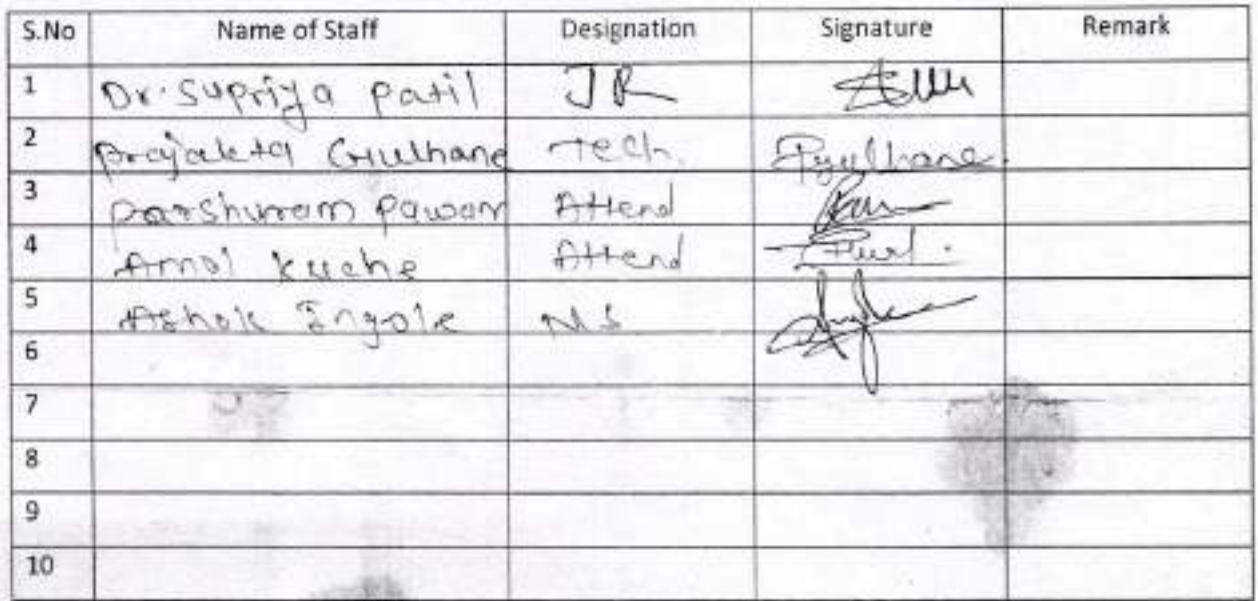 S.No Name of Staff Designation Signature Remark
1 Dr. Supriya Patil JR
2 Prajakta Gulhane Tech. Pgulhane
3 Parshuram Pawar Attend
4 Amol Kuche Attend
5 Ashok Ingole NS
6
7
8
9
10